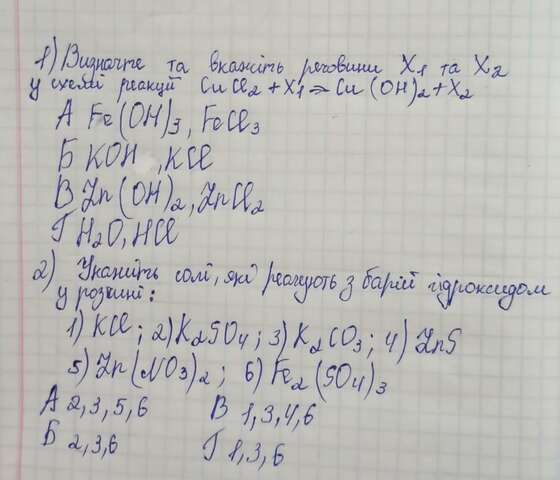 1) Визначте та вкажіть речовини X1 та X2
у схемі реакції CuCl2 + X1 → Cu(OH)2 + X2
А Fe(OH)3, FeCl3
Б KOH, KCl
В Zn(OH)2, ZnCl2
Г H2O, HCl
2) Укажіть солі, які реагують з барій гідроксидом
у розчині:
1) KCl; 2) K2SO4; 3) K2CO3; 4) ZnS
5) Zn(NO3)2; 6) Fe2(SO4)3
А 2,3,5,6 В 1,3,4,6
Б 2,3,6 Г 1,3,6